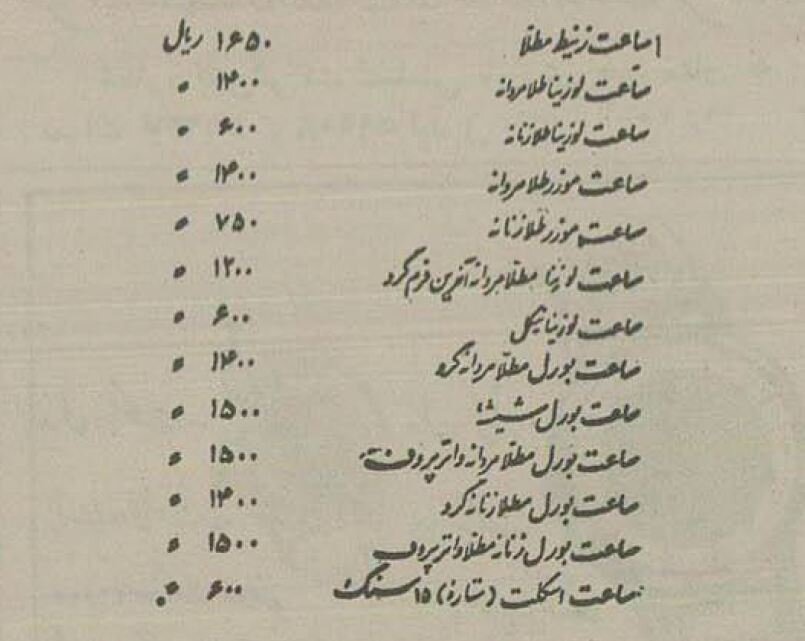 ساعت زنیط مطلا ۱۶۵۰ ریال
ساعت لوزینا طلا مردانه ۱۴۰۰ "
ساعت لوزینا طلا زنانه ۶۰۰ "
ساعت موزر طلا مردانه ۱۴۰۰ "
ساعت موزر طلا زنانه ۷۵۰ "
ساعت لوزینا مطلا مردانه آخرین فرم گرد ۱۲۰۰ "
ساعت لوزینا نیکل ۶۰۰ "
ساعت بورل مطلا مردانه گرد ۱۴۰۰ "
ساعت بورل ۱۵۰۰ "
ساعت بورل مطلا مردانه واتر پروف ۱۵۰۰ "
ساعت بورل مطلا زنانه گرد ۱۴۰۰ "
ساعت بورل زنانه مطلا واتر پروف ۱۵۰۰ "
ساعت اسکلت (ستاره) ۱۵ سنگ ۶۰۰ "